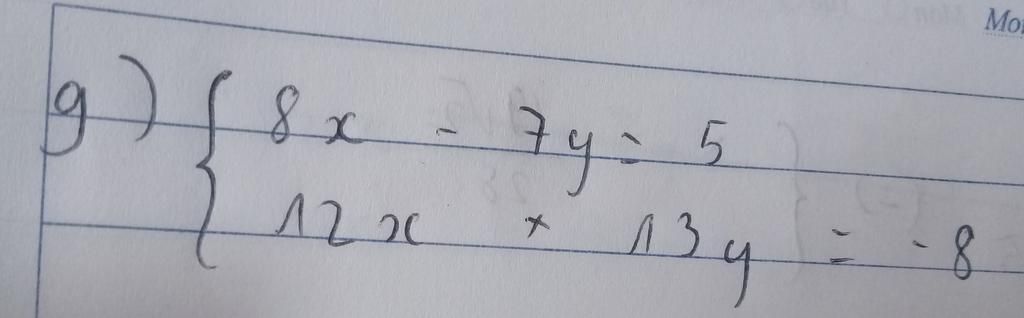 Mo
g) { 8x - 7y = 5
12x + 13y = -8